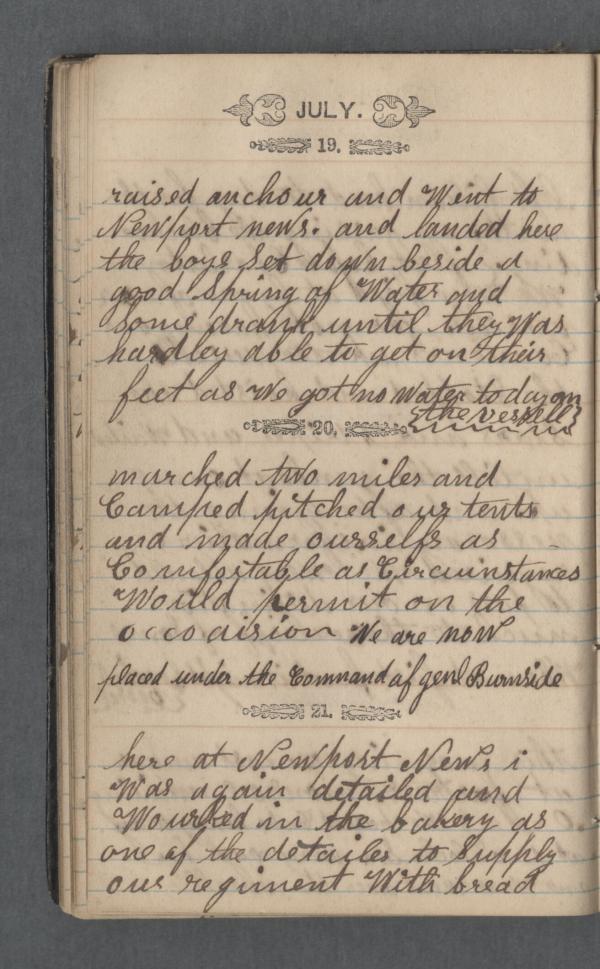 JULY.
19.
raised anchour and Went to
Newport news. and landed here
the boys set down beside a
good Spring of Water and
Some drank until they Was
hardley able to get on their
feet as We got no Water today on
{the vessell}
20.
marched two miles and
Camped pitched our tents
and made ourselfs as
Comfortable as Circumstances
Would permit on the
We are now
placed under the Command of genl Burnside
21.
here at Newport News i
Was again detailed and
Wourked in the bakery as
one of the detailes to Supply
our regiment With bread